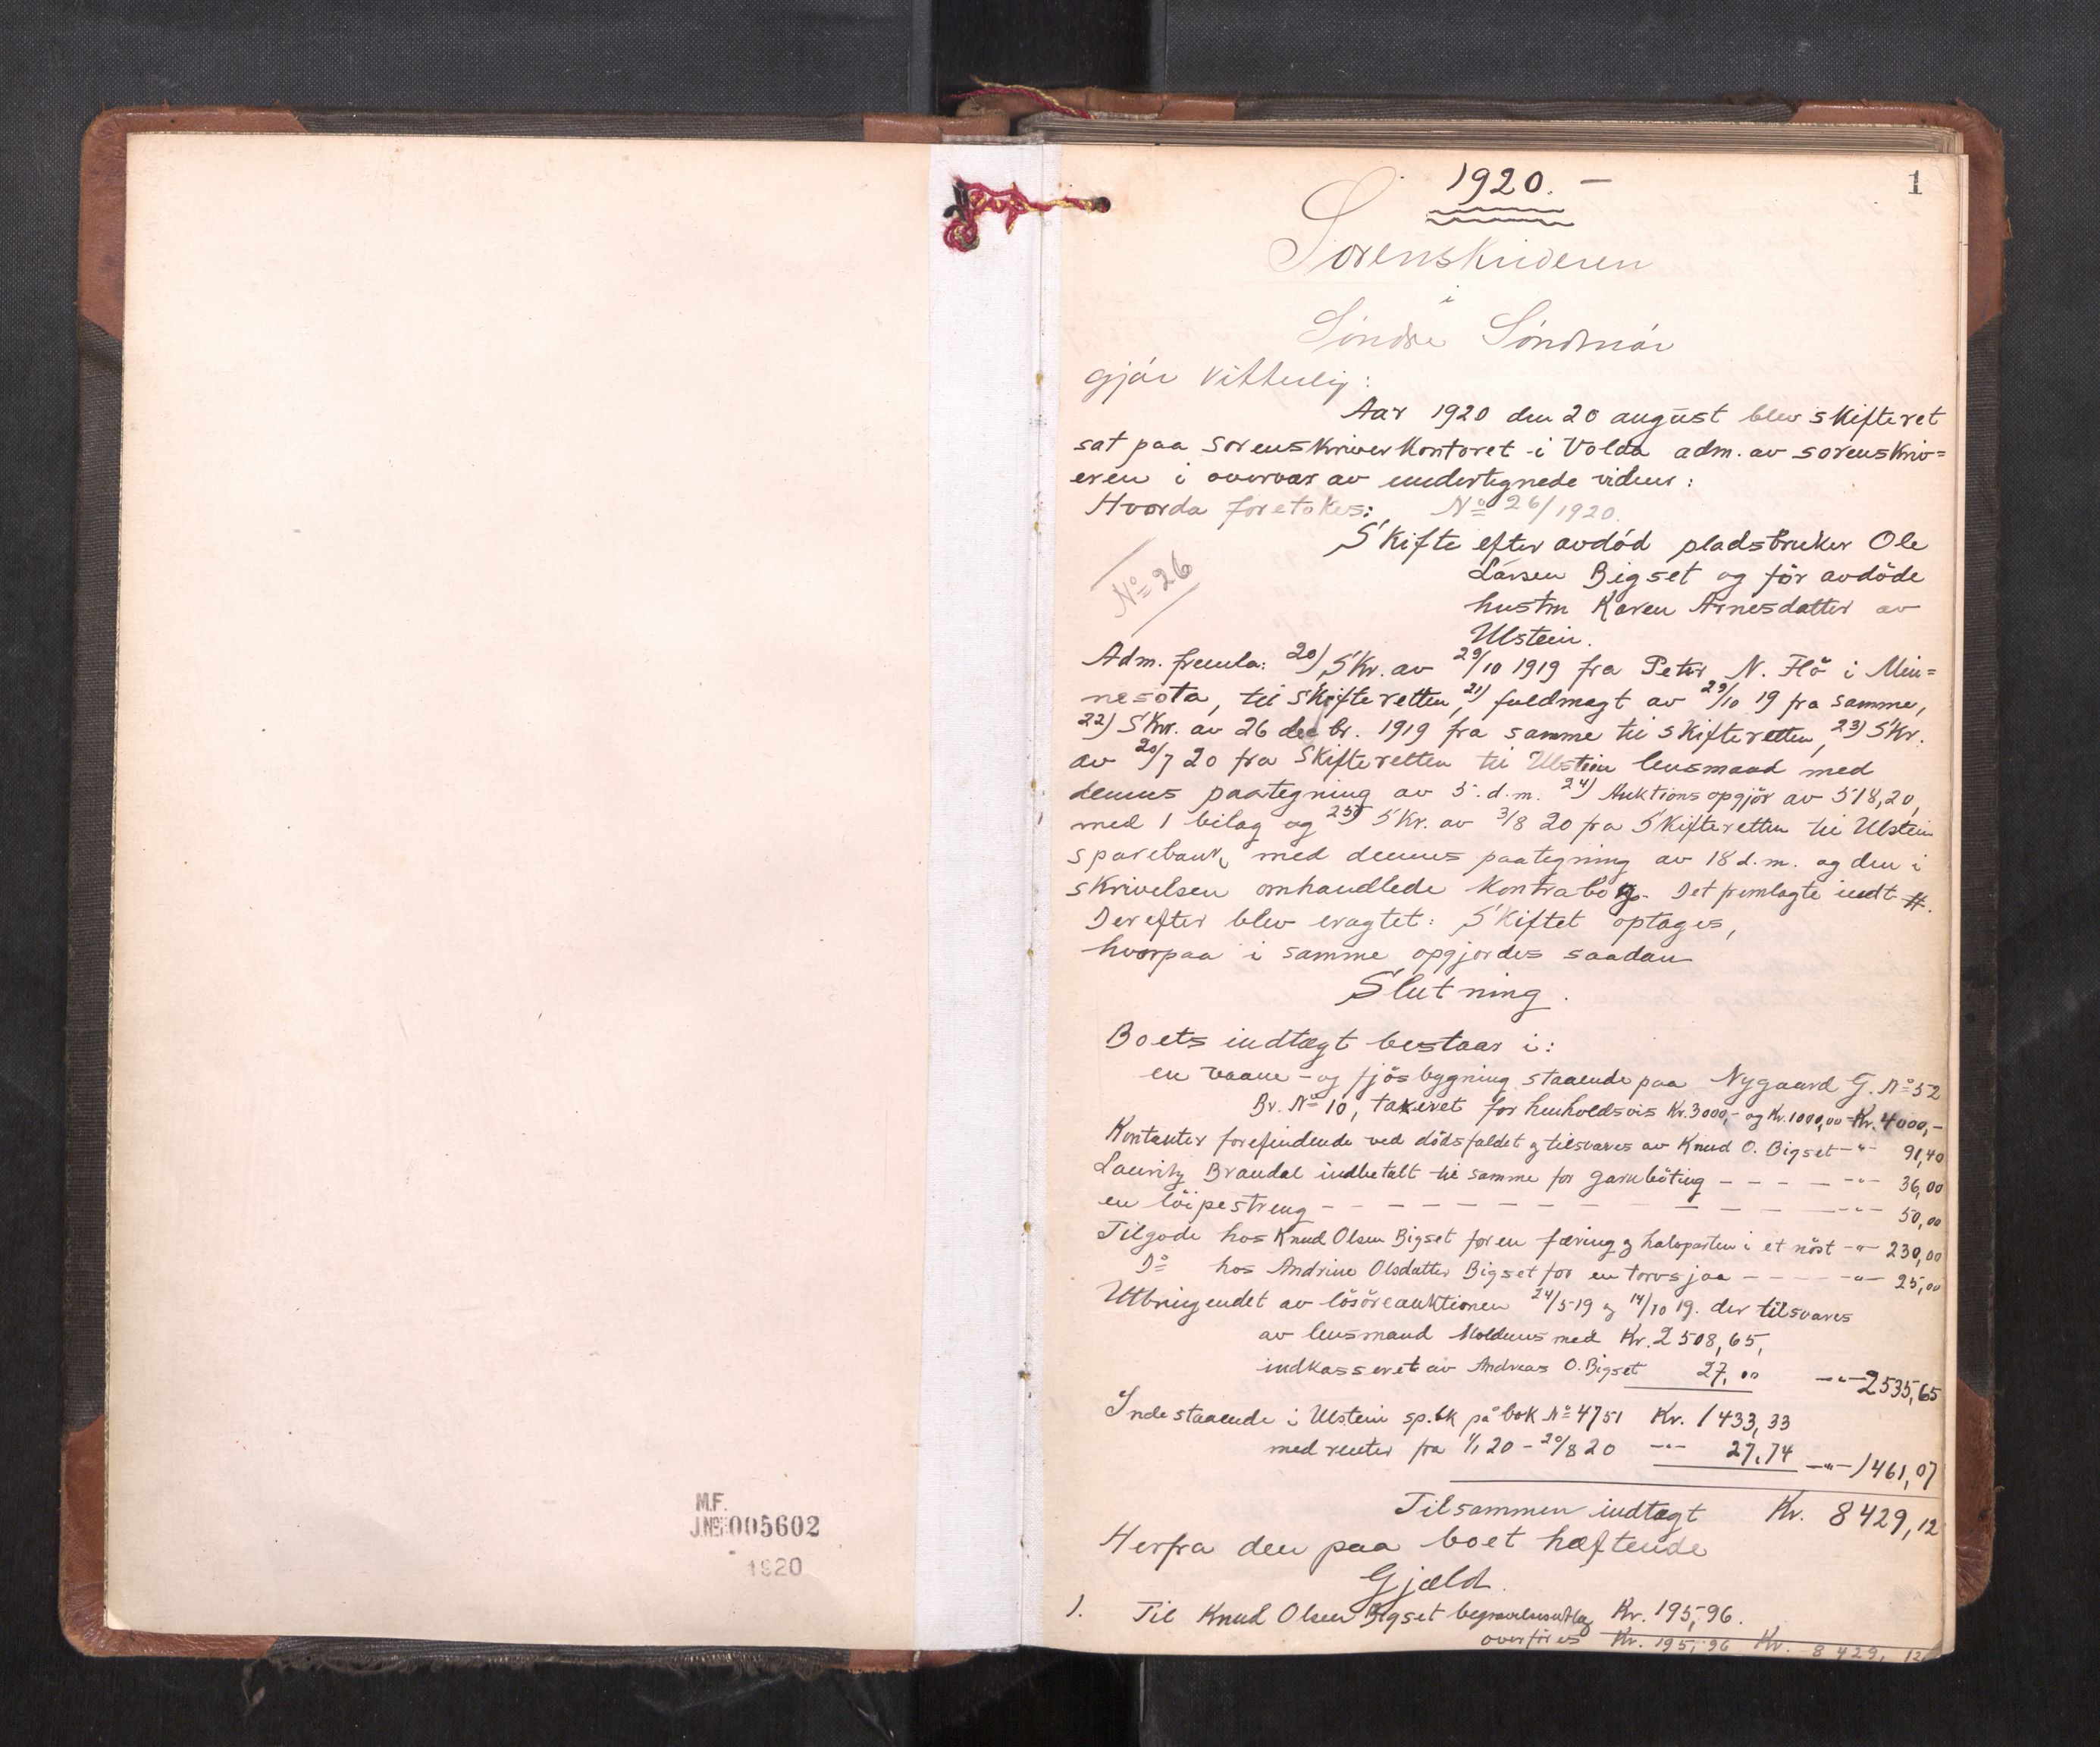 M.F.
J.No: 005602
1920
1
1920. –
Sorenskriveren
i
Söndre Söndmör
gjör vitterlig:
Aar 1920 den 20 august blev skifteret
sat paa sorenskriverkontoret i Volda adm. av sorenskriv=
eren i overvær av undertegnede vidner:
Hvorda foretokes: No 26/1920.
No 26
Skifte efter avdöd pladsbruker Ole
Larsen Bigset og för avdöde
hustru Karen Arnesdatter av
Ulstein.
Adm. fremla: 20) Skr. av 29/10 1919 fra Peter N. Flö i Min=
nesota, til skifteretten, 21) fuldmagt av 29/10 19 fra samme,
22) Skr. av 26 decbr. 1919 fra samme til skifteretten, 23) Skr.
av 20/7 20 fra Skifteretten til Ulstein lensmand med
dennes paategning av 5. d.m. 24) Auktionsopgjör av 518,20,
med 1 bilag og 25) Skr. av 3/8 20 fra Skifteretten til Ulstein
sparebank, med dennes paategning av 18 d.m. og den i
skrivelsen omhandlede kontrabog. Det fremlagte indt #.
Derefter blev eragtet: Skiftet optages,
hvorpaa i samme opgjordes saadan
Slutning.
Boets indtægt bestaar i:
en vaane- og fjösbygning staaende paa Nygaard G. No 52
Br. No 10, taxeret for henholdsvis Kr. 3000,- og Kr. 1000,00 = Kr. 4000,-
Kontanter forefindende ved dödsfaldet og tilsvares av Knud O. Bigset –"– 91,40
Lauritz Brandal indbetalt til samme for garnböting – – – – –"– 36,00
en löipestreng – – – – – – – – – – –"– 50,00
Tilgode hos Knud Olsen Bigset for en færing og halvparten i et nöst –"– 230,00
Do hos Andrine Olsdatter Bigset for en torvsjaa – – – –"– 25,00
Utbringendet av lösöreauktionen 24/5 19 og 14/10 19. der tilsvares
av lensmand Moldenes med Kr. 2508,65,
indkasseret av Andreas O. Bigset 27,00 –"– 2535,65
Indestaaende i Ulstein sp.bk på bok No 4751 Kr. 1433,33
med renter fra 1/1 20 – 20/8 20 –"– 27,74 –"– 1461,07
Tilsammen indtægt Kr. 8429,12
Herfra den paa boet hæftende
Gjæld.
1. Til Knud Olsen Bigset begravelsesutlæg Kr. 195,96.
overföres Kr. 195,96 Kr. 8429,12